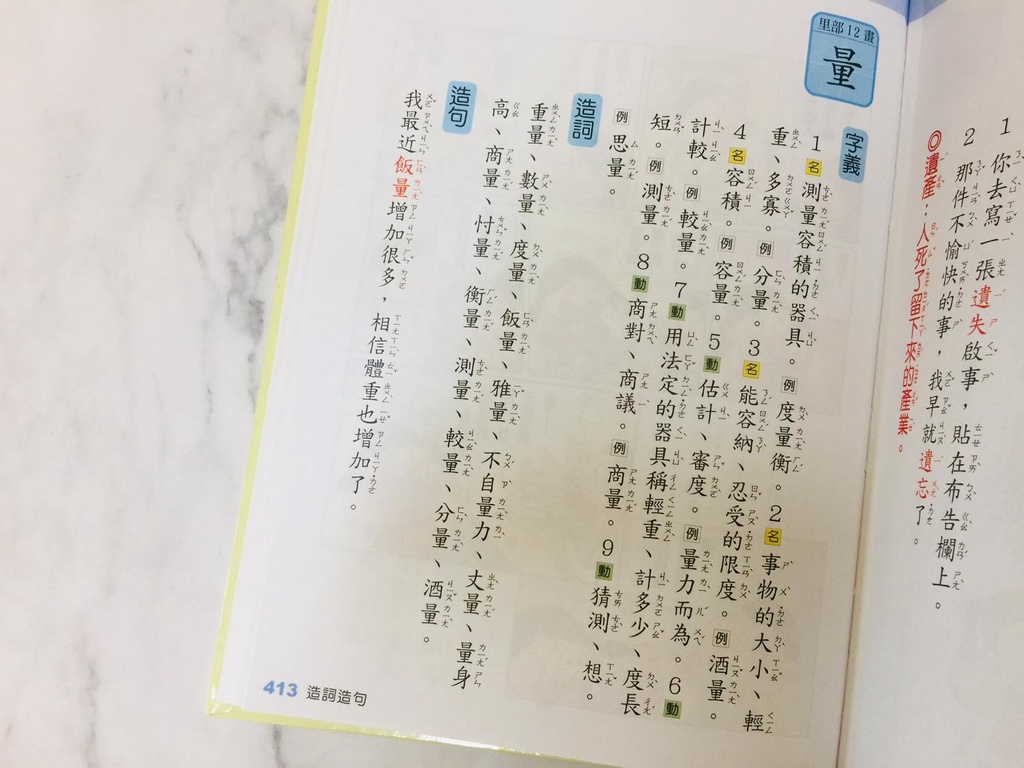 1 你去寫一張遺失啟事，貼在布告欄上。
2 那件不愉快的事，我早就遺忘了。
◎遺產：人死了留下來的產業。
里部12畫
量
字義
1 名 測量容積的器具。例 度量衡。2 名 事物的大小、輕
重、多寡。例 分量。3 名 能容納、忍受的限度。例 酒量。
4 名 容積。例 容量。5 動 估計、審度。例 量力而為。6 動
計較。例 較量。7 動 用法定的器具稱輕重、計多少、度長
短。例 測量。8 動 商對、商議。例 商量。9 動 猜測、想。
例 思量。
造詞
重量、數量、度量、飯量、雅量、不自量力、丈量、量身
高、商量、忖量、衡量、測量、較量、分量、酒量。
造句
我最近飯量增加很多，相信體重也增加了。
413 造詞造句